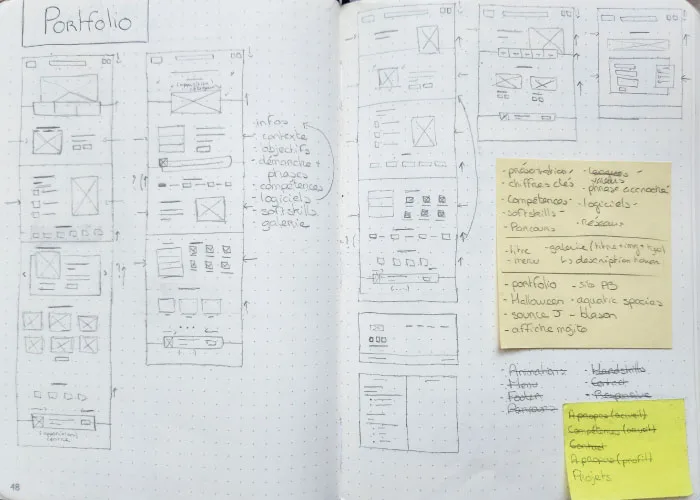 Portfolio
- infos
- contexte
- objectifs
- démarche +
phases
- compétences
- logiciels
- softskills
- galerie
- présentation
- chiffres clés
- phrase accroche
- compétences
- logiciels
- softskills
- Parcours
- réseaux
- titre
- menu
↳ description
- portfolio
- Halloween
- aquatic species
- source J
- blason
- affiche mojito
Animations
Menu
Footer
Parcours
Contact
Responsive
A propos (accueil)
Compétences (accueil)
Contact
A propos (profil)
Projets
48